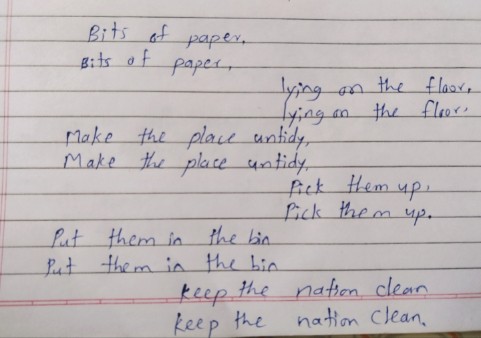 Bits of paper,
Bits of paper,
lying on the floor,
lying on the floor,
Make the place untidy,
Make the place untidy,
Pick them up,
Pick them up.
Put them in the bin
Put them in the bin
keep the nation clean
keep the nation clean.